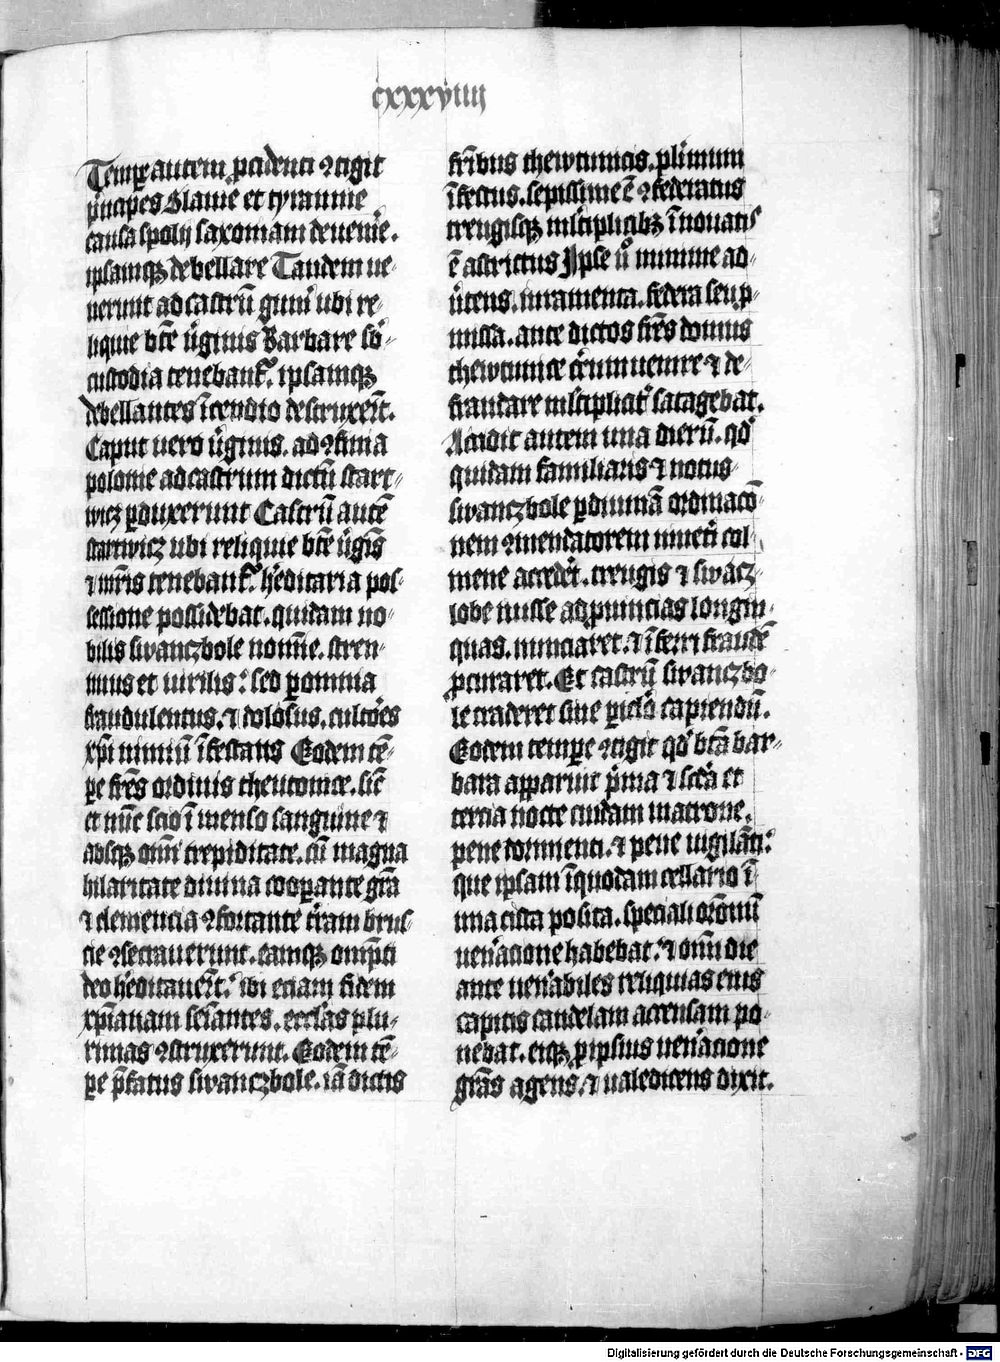 cxxxviiii
Tempe autem p̄cedenti ꝯtigit
p̄ncipes Slauie et tyrannie
causa spolij saxoniam deuenīe.
ipsamqꝫ debellare Tandem ue-
nerunt ad castrū guni ubi re-
liquie bt̄e ūginis Barbare sb̄-
custodia tenebant᷑. ipsamqꝫ
debellantes īcendio destruxer̄t.
Caput uero ūginis. ad ꝯfinia
polonie ad castrum dictū start-
wicz ꝑduxerunt Castrū autē
startwicz ubi reliquie bt̄e ūgīs
⁊ mr̄is tenebant᷑. h̓editaria pos-
sessione possidebat. quidam no-
bilis swanczbole nomīe. stren-
nuus et uirilis: sed ꝑ omnia
fraudulentus. ⁊ dolosus. cultōēs
xp̄i nimiū īfestans Eodem tē-
pe fr̄es ordinis theutonice. sic̄
et nūc scīo ī menso sanguine ⁊
absqꝫ omī trepiditate. cū magna
hilaritate diuina cooꝑante gr̄a
⁊ clemencia ꝯfortante t̓ram brus-
cie ꝯsecrauerunt. eamqꝫ omp̄ti
deo h̓editauer̄t. ibi etiam fidem
xp̄ianam sēīantes. eccl̄as plu-
rimas ꝯstruxerunt. Eodem tē-
pe p̄fatus swanczbole. iā dictis
fr̄ibus thewtunicis. pl̓imum
īfestus. sepissime ē ꝯfederatus
treugisqꝫ ml̓tiplicibꝫ īnouatis
ē astrictus Ipse u̓o minime ad-
ūtens. iuramenta. federa seu ꝓ-
missa. ante dictos fr̄es domus
thewtunice c̓rcumuenire ⁊ de-
fraudare ml̓tiplicit᷑ satagebat.
Accidit autem una dierū. qd̓
quidam familiaris ⁊ notus
swanczbole ꝑ diuinā ordinacō-
nem ꝯmendatorem inueīt col-
mene accedēt. treugis ⁊ swacz-
lobe nusse ad ꝓuincias longin-
quas. nunciaret. ⁊ īferri fraudē
ꝓcuraret. Et castrū swanczbo-
le traderet sine ꝑiclo capiendū.
Eodem tempe ꝯtigit qd̓ bt̄a bar-
bara apparuit p̓ma ⁊ sc̄da et
tercia nocte cuidam matrone.
pene dormienti. ⁊ pene uigilāti:
que ipsam ī quodam cellario ī
una cista posita. speciali or̄onū
ueneracione habebat. ⁊ omī die
ante uenerabiles reliquias eius
capitis candelam accensam po-
nebat. eiqꝫ ꝓ ipsius ueneracione
gr̄as agens. ⁊ ualedicens dixit.
Digitalisierung gefördert durch die Deutsche Forschungsgemeinschaft - DFG